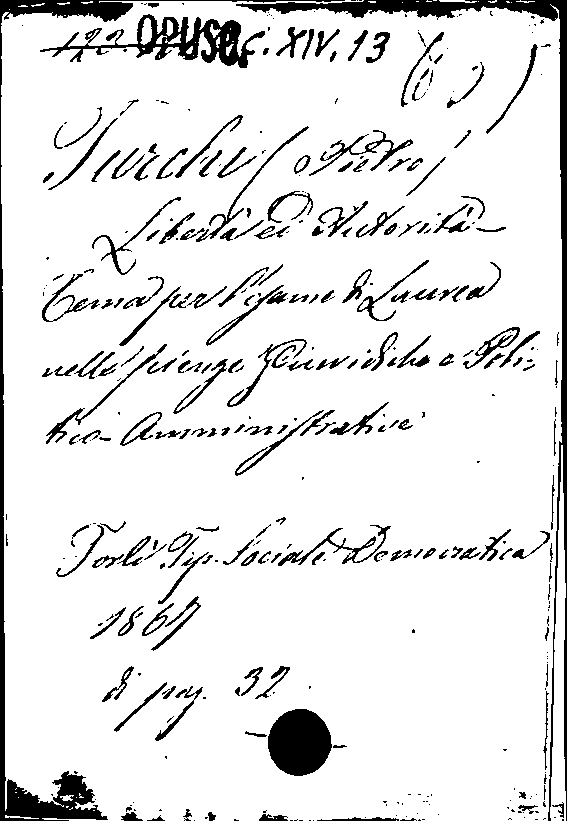 OPUSC. C. XIV. 13
Turchi (Pietro)
Libertà ed Autorità
Tema per l'esame di Laurea
nelle scienze Giuridiche e Poli-
tico-Amministrative
Forlì Tip. Sociale Democratica
1867
di pag. 32